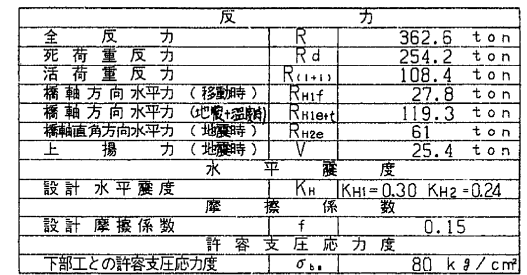 反 力
全 反 力 R 362.6 ton
死荷重反力 Rd 254.2 ton
活荷重反力 R(l+i) 108.4 ton
橋軸方向水平力 (移動時) RH1f 27.8 ton
橋軸方向水平力 (地震+温度時) RH1e+t 119.3 ton
橋軸直角方向水平力 (地震時) RH2e 61 ton
上 揚 力 (地震時) V 25.4 ton
水 平 震 度
設計水平震度 KH KH1=0.30 KH2=0.24
摩 擦 係 数
設計摩擦係数 f 0.15
許容支圧応力度
下部工との許容支圧応力度 80 kg/cm²